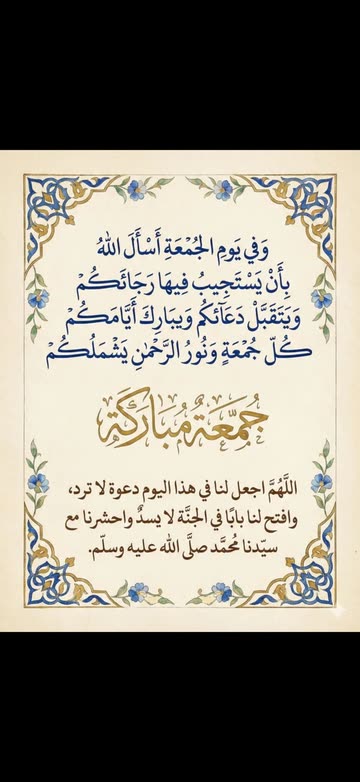 وَفِي يَومِ الجُمْعَةِ أَسْأَلَ اللهُ
بِأَنْ يَسْتَجِيبُ فِيهَا رَجَائَكُمْ
وَيَتَقَبَّلْ دَعَآئكُم وَيبَارِكَ أَيَّامَكُمْ
كُلّ جُمْعَةٍ وَنُورُ الرَّحْمٰنِ يَشْمَلُكُمْ
جُمِّعَةٌ مُبَارَكَة
اللَّهُمَّ اجعل لنا في هذا اليوم دعوة لا ترد،
وافتح لنا بابًا في الجنَّة لا يسدٌ واحشرنا مع
سيّدنا مُحمَّد صلَّى الله عليه وسلّم.